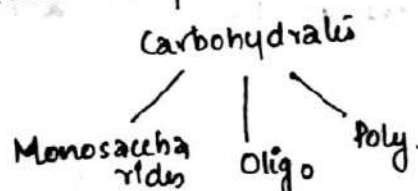 Carbohydrates
Monosaccha
rides
Oligo
Poly.